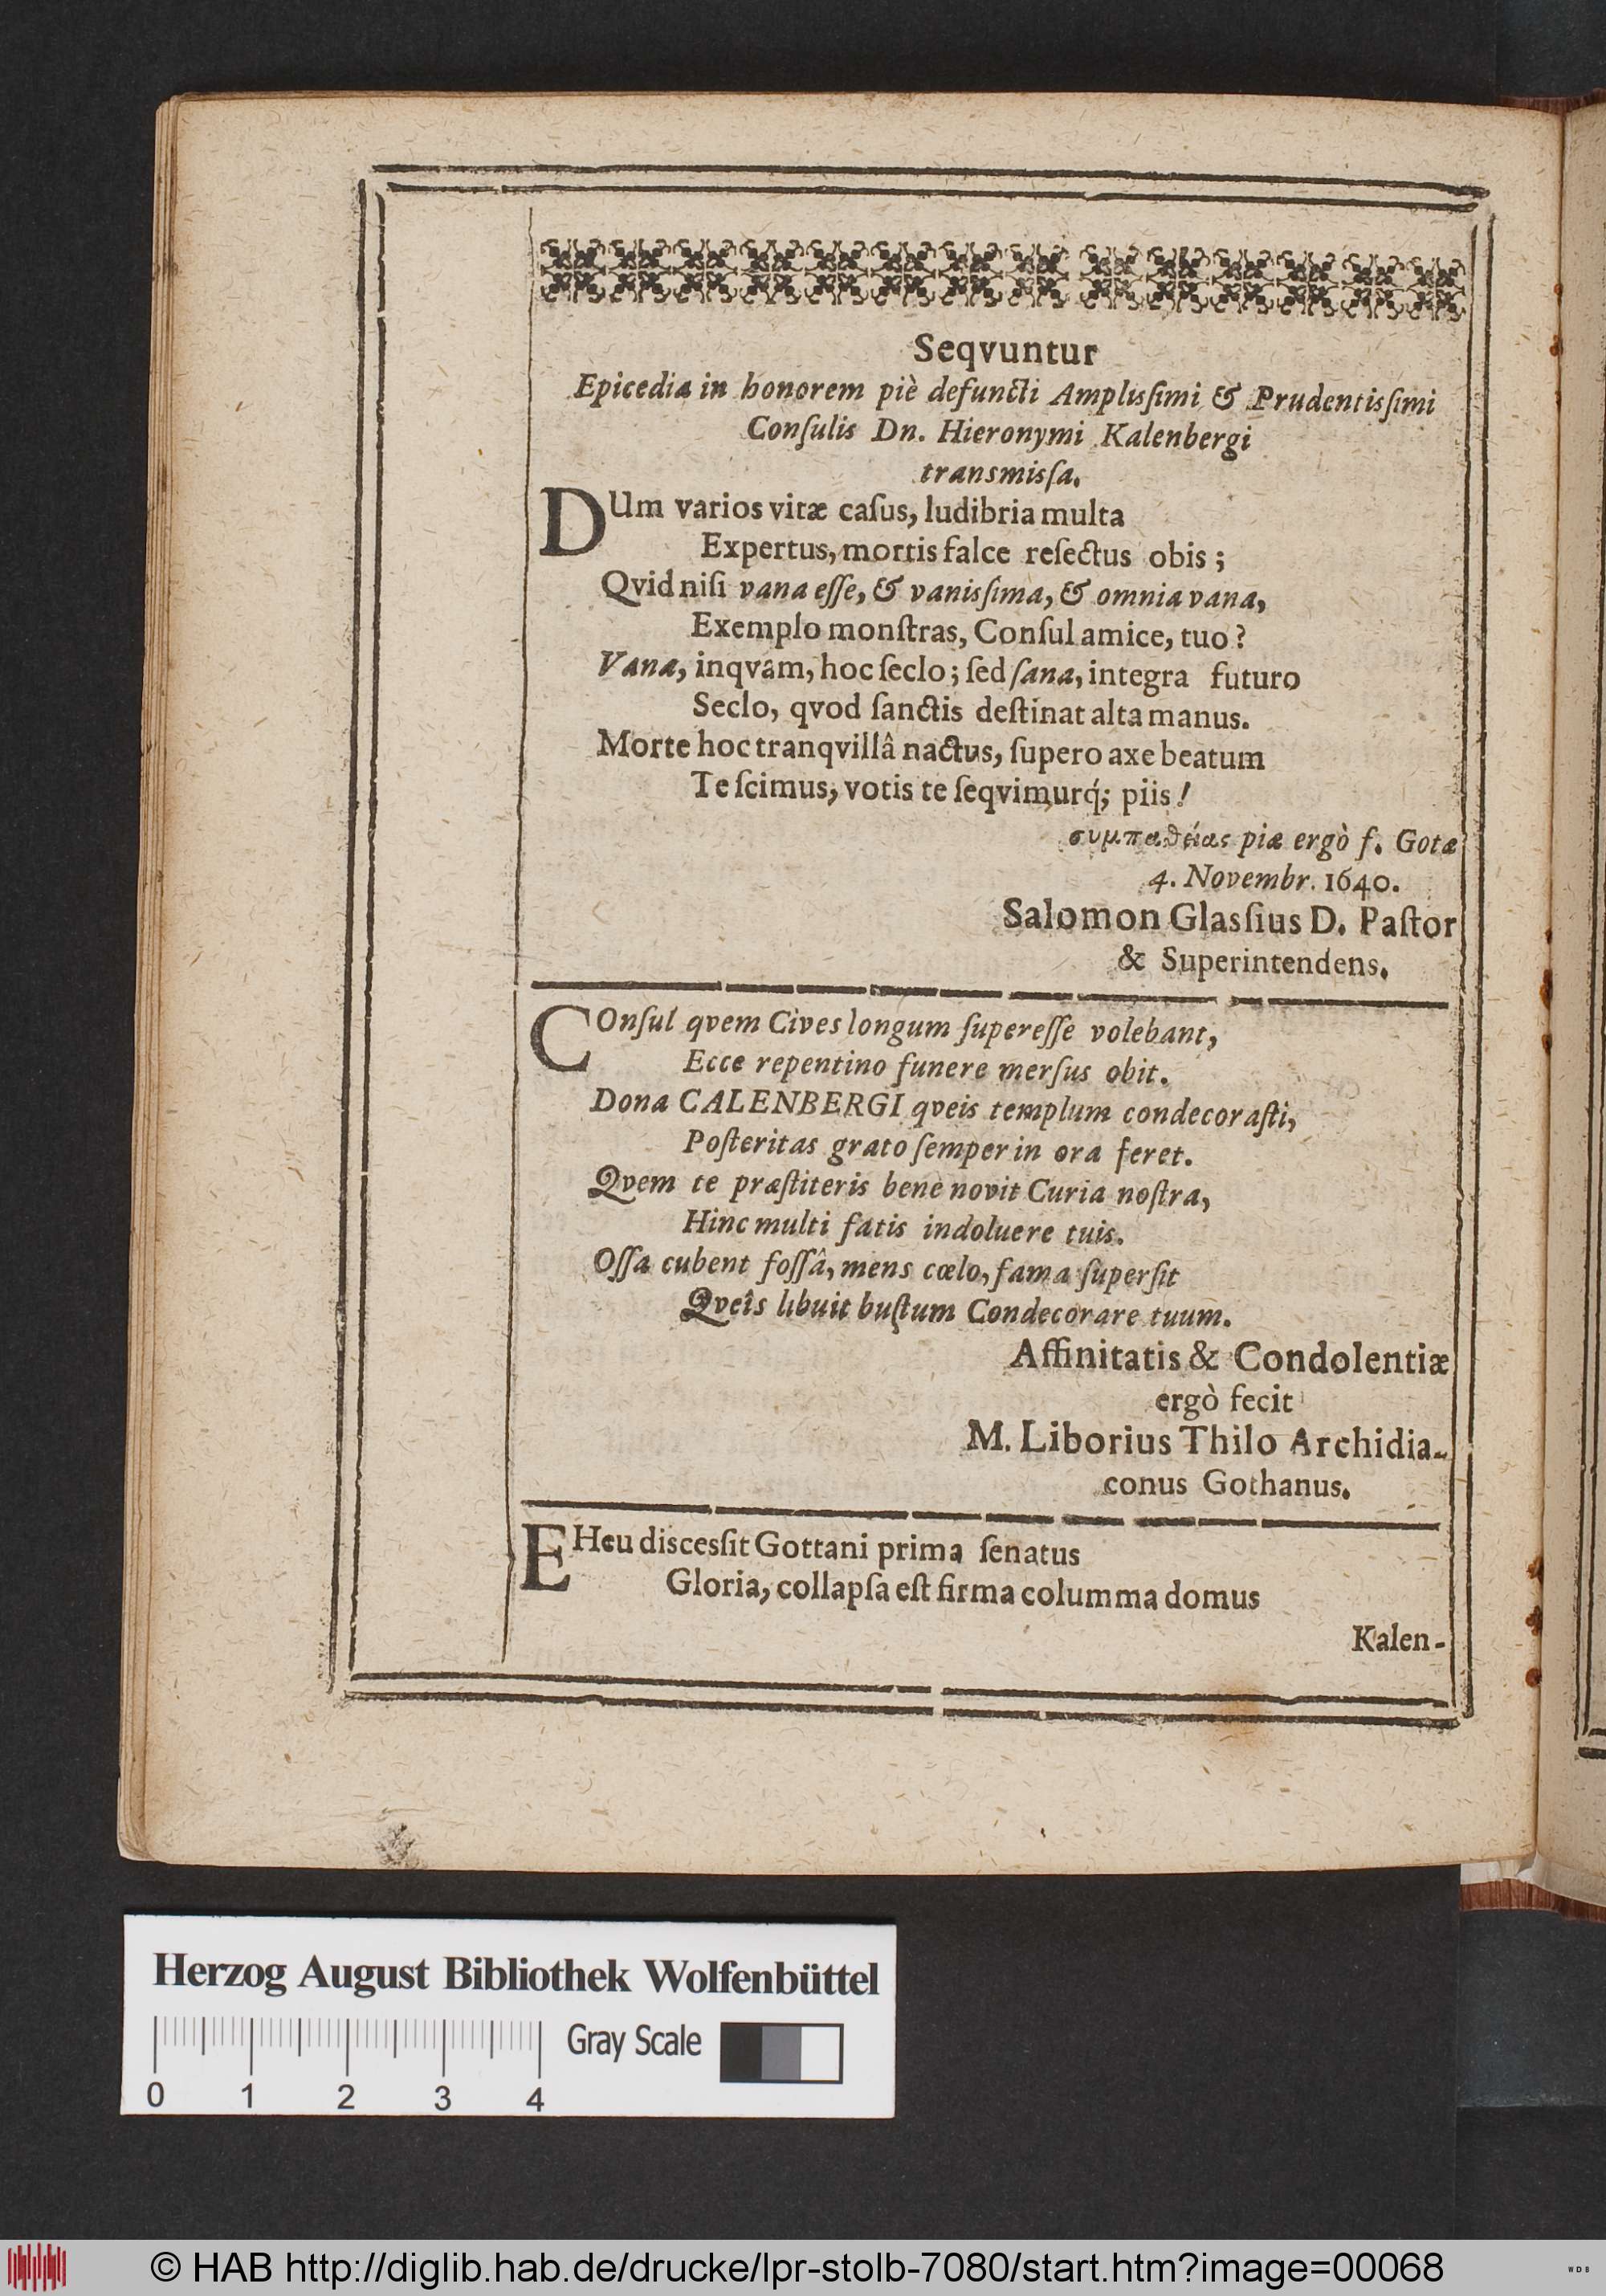 Seqvuntur
Epicedia in honorem piè defuncti Amplisſimi & Prudentisſimi
Conſulis Dn. Hieronymi Kalenbergi
transmisſa.
DUm varios vitæ caſus, ludibria multa
Expertus, mortis falce reſectus obis;
Qvid niſi vana eſſe, & vanisſima, & omnia vana,
Exemplo monſtras, Conſul amice, tuo?
Vana, inqvam, hoc ſeclo; ſed ſana, integra futuro
Seclo, qvod ſanctis deſtinat alta manus.
Morte hoc tranqvillâ nactus, ſupero axe beatum
Te ſcimus, votis te ſeqvimurq́; piis!
συμπαθείας piæ ergò f. Gotæ
4. Novembr. 1640.
Salomon Glasſius D. Paſtor
& Superintendens.
COnſul qvem Cives longum ſupereſſe volebant,
Ecce repentino funere merſus obit.
Dona CALENBERGI qveis templum condecoraſti,
Poſteritas grato ſemper in ora feret.
Qvem te præſtiteris benè novit Curia noſtra,
Hinc multi fatis indoluere tuis.
Oſſa cubent foſſâ, mens cœlo, fama ſuperſit
Qveîs libuit buſtum Condecorare tuum.
Affinitatis & Condolentiæ
ergò fecit
M. Liborius Thilo Archidia-
conus Gothanus.
EHeu discesſit Gottani prima ſenatus
Gloria, collapſa eſt firma columma domus
Kalen-
Herzog August Bibliothek Wolfenbüttel
Gray Scale
0 1 2 3 4
© HAB http://diglib.hab.de/drucke/lpr-stolb-7080/start.htm?image=00068
WDB